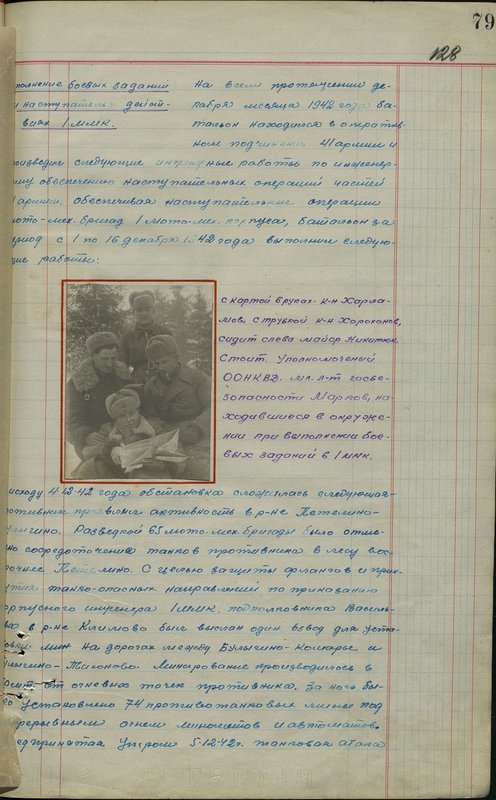 79
128
полнение боевых заданий
и наступатель- дейст-
виях 1 ММК.
На всем протяжении де-
кабря месяца 1942 года ба-
тальон находился в оператив-
ном подчинении 41 армии и
производил следующие инженерные работы по инженер-
ному обеспечению наступательных операций частей
армии. Обеспечивая наступательные операции
мото-мех. бригад 1 мото-мех. корпуса, батальон за
период с 1 по 16 декабря 1942 года выполнил следую-
щие работы:
с картой в руках - к-н Харла-
мов, с трубкой к-н Хороконов,
сидит слева майор Никитюк,
Стоит Уполномоченый
ООНКВД. мл. л-т госбе-
зопасности Марков, на-
ходившиеся в окруже-
нии при выполнении бое-
вых заданий в 1 ММК.
исходу 4-12-42 года обстановка сложилась следующая-
противник проявил активность в р-не Петелино-
Разведкой 65 мото-мех бригады было отме-
но сосредоточение танков противника в лесу вос-
точнее Петелино. С целью защиты флангов и при-
танко-опасных направлений по приказанию
корпусного инженера 1 ММК. подполковника Василь-
ва в р-не Климово был выслан один взвод для уста-
новки мин на дорогах между Булыгино-Комарье и
улыгино-Тихоново. Минирование производилось в
от огневых точек противника. За ночь бы-
ло установлено 74 противотанковых мины под
прерывным огнем минометов и автоматов.
редпринятая утром 5-12-42г. танковая атака